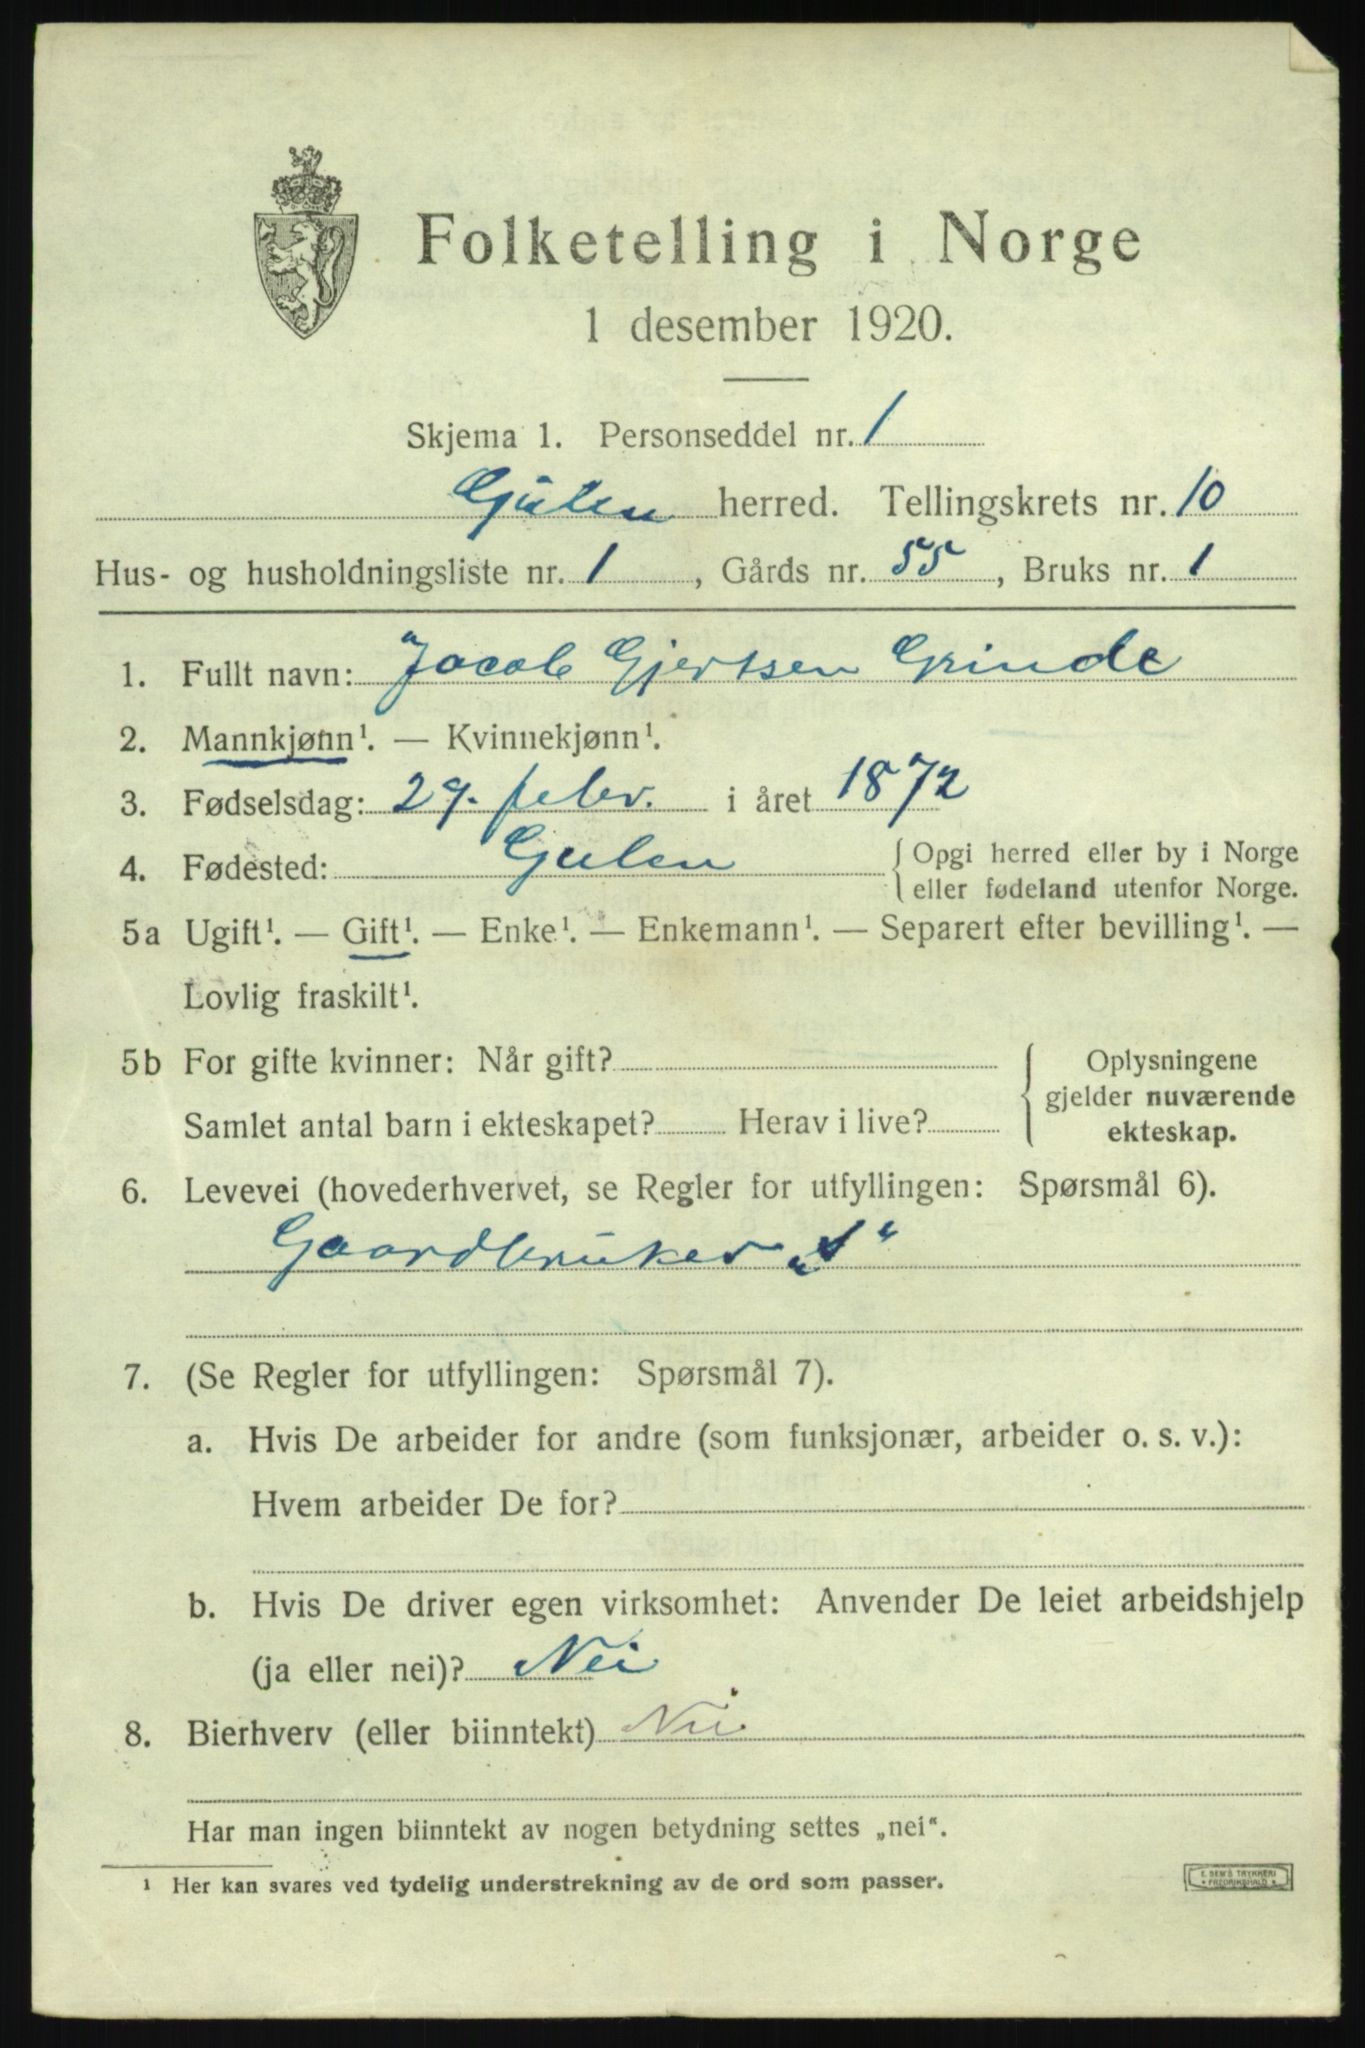 Folketelling i Norge
1 desember 1920.
Skjema 1. Personseddel nr. 1
Gulen herred. Tellingskrets nr. 10
Hus- og husholdningsliste nr. 1, Gårds nr. 55, Bruks nr. 1
1. Fullt navn: Jacob Gjertsen Grinde
2. Mannkjønn¹. — Kvinnekjønn¹.
3. Fødselsdag: 29. febr. i året 1872
4. Fødested: Gulen { Opgi herred eller by i Norge
eller fødeland utenfor Norge.
5a Ugift¹. — Gift¹. — Enke¹. — Enkemann¹. — Separert efter bevilling¹. —
Lovlig fraskilt¹.
5b For gifte kvinner: Når gift? { Oplysningene
gjelder nuværende
Samlet antal barn i ekteskapet? Herav i live?
ekteskap.
6. Levevei (hovederhvervet, se Regler for utfyllingen: Spørsmål 6).
Gaardbruker „S“
7. (Se Regler for utfyllingen: Spørsmål 7).
a. Hvis De arbeider for andre (som funksjonær, arbeider o. s. v.):
Hvem arbeider De for?
b. Hvis De driver egen virksomhet: Anvender De leiet arbeidshjelp
(ja eller nei)? Nei
8. Bierhverv (eller biinntekt) Nei
Har man ingen biinntekt av nogen betydning settes „nei“.
¹ Her kan svares ved tydelig understrekning av de ord som passer.
E. SEM'S TRYKKERI
FREDRIKSHALD